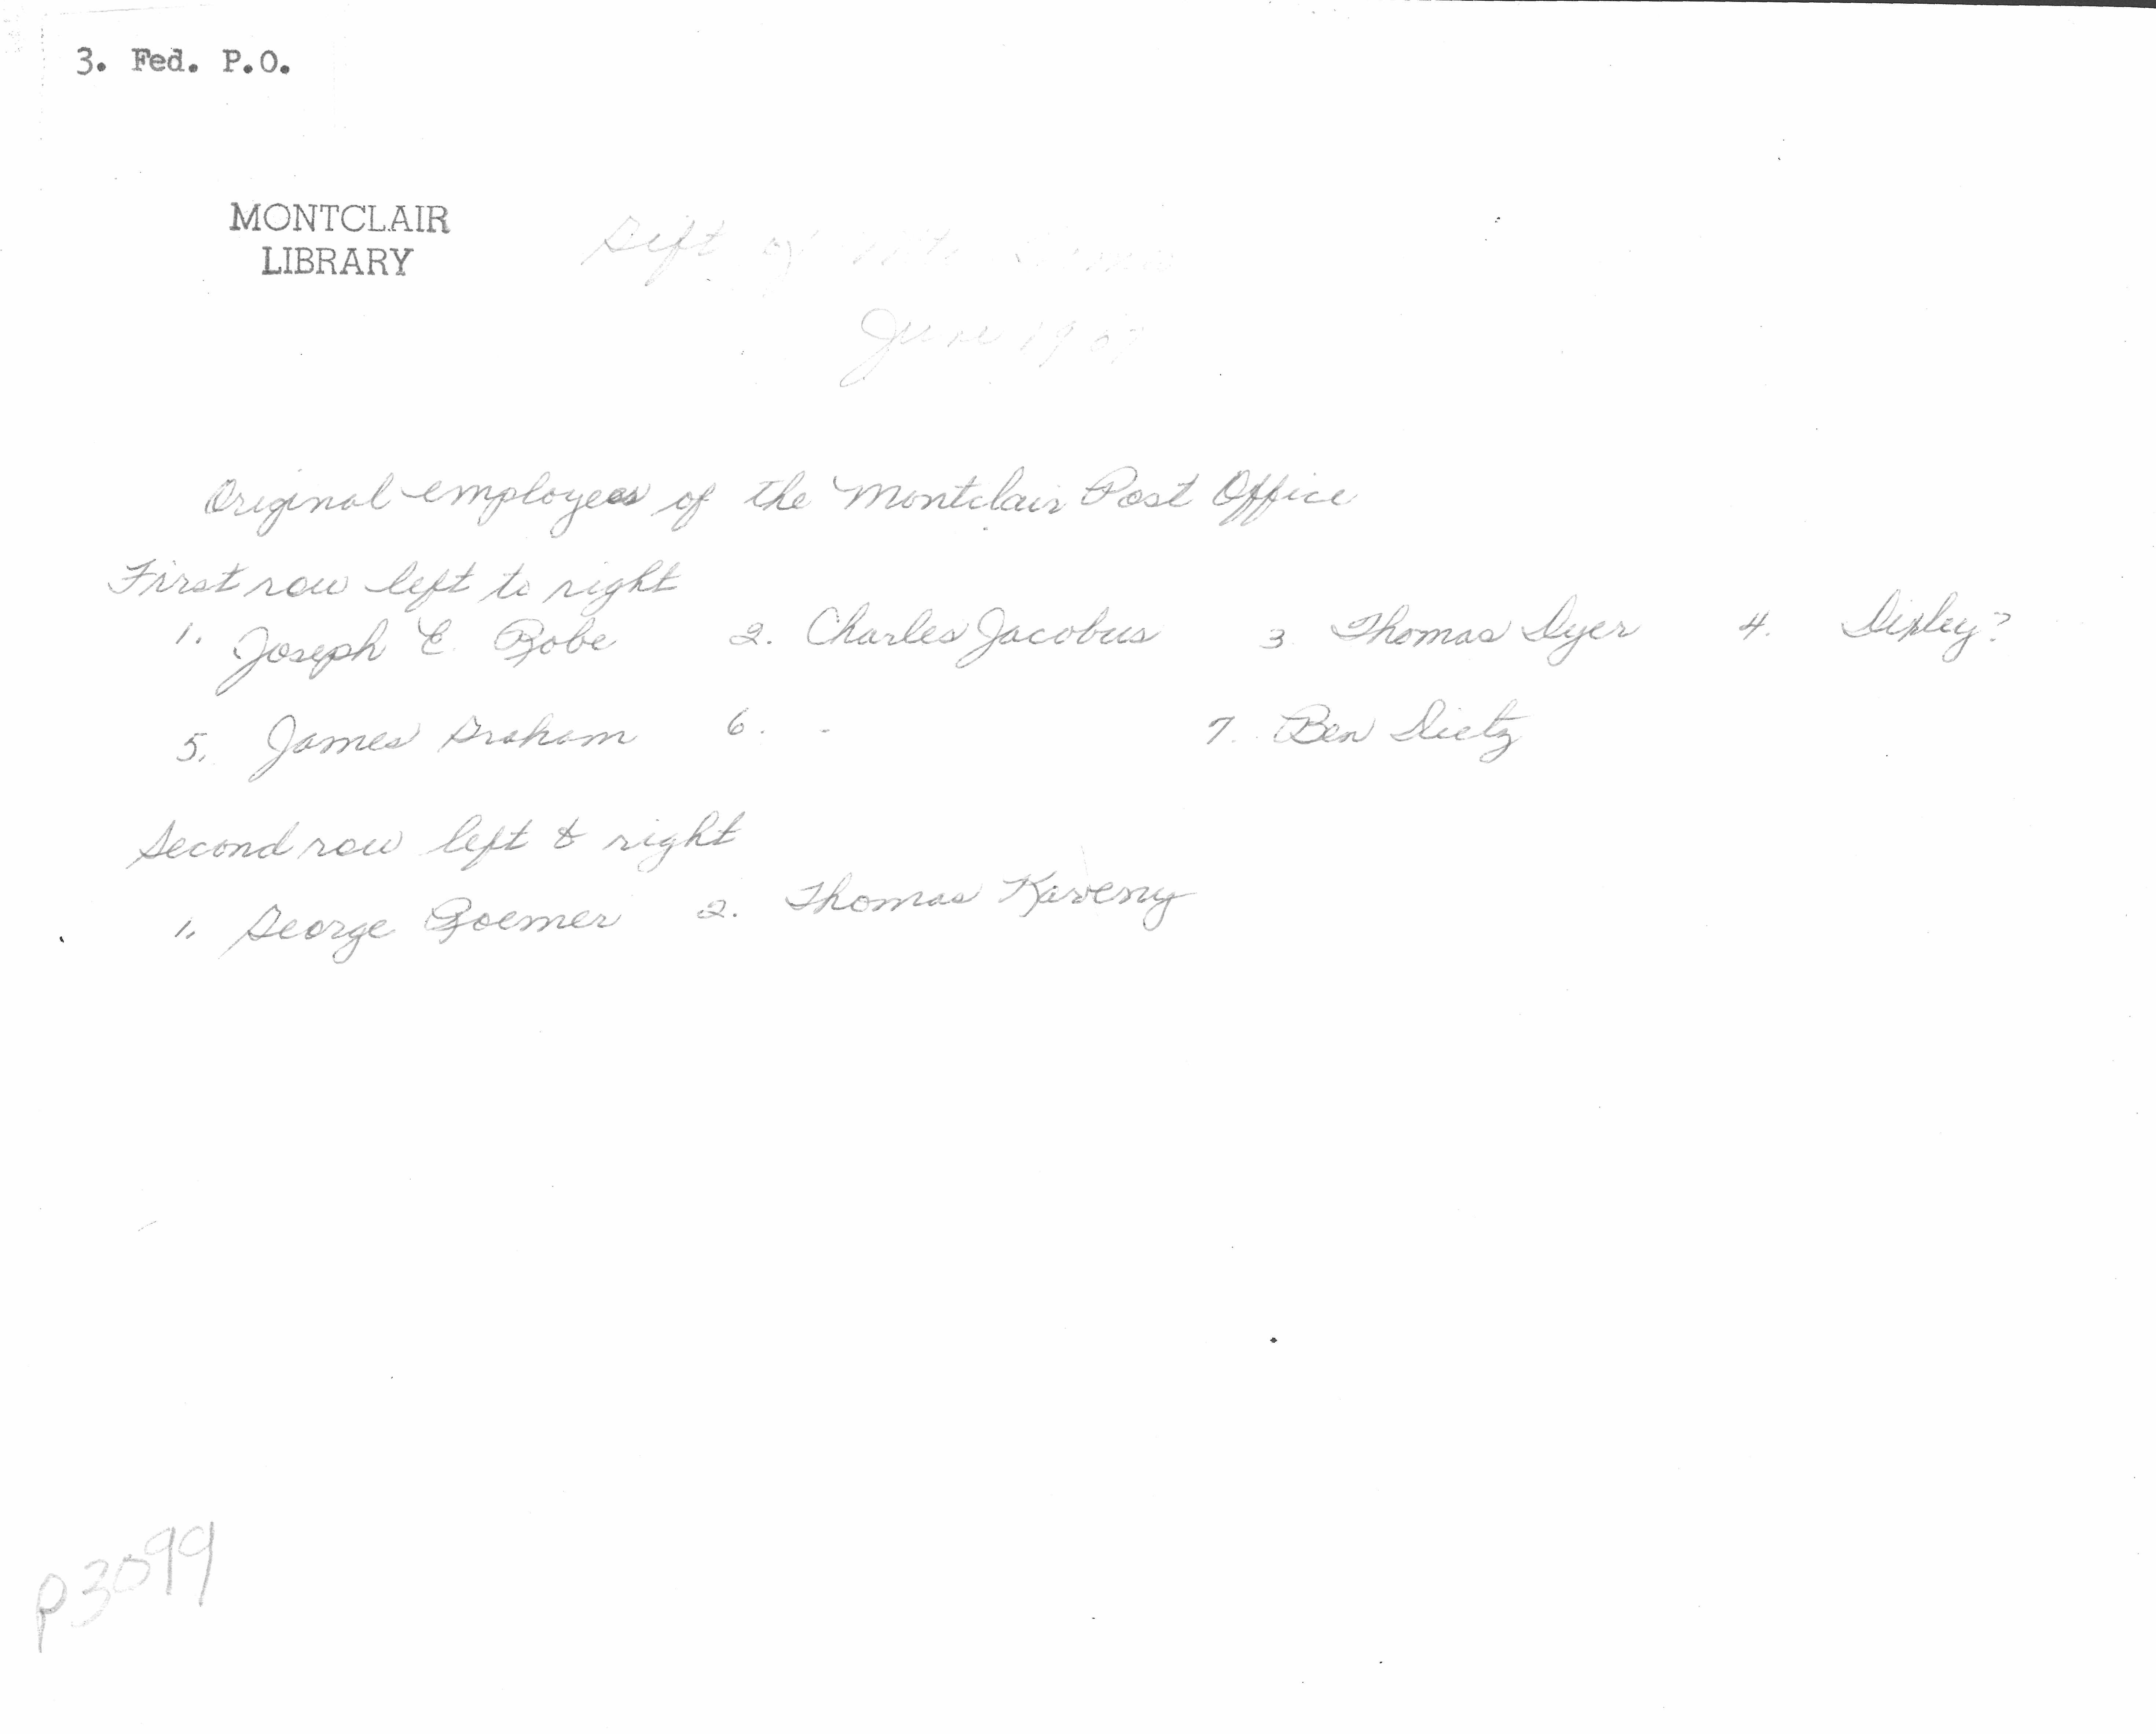 3. Fed. P.O.
MONTCLAIR
LIBRARY
Gift of
June 19
Original employees of the Montclair Post Office
First row left to right
1. Joseph E. Robe 2. Charles Jacobus 3. Thomas Dyer 4. Sipley?
5. James Graham 6. - 7. Ben Dietz
Second row left to right
1. George Roemer 2. Thomas Kaveny
p3099